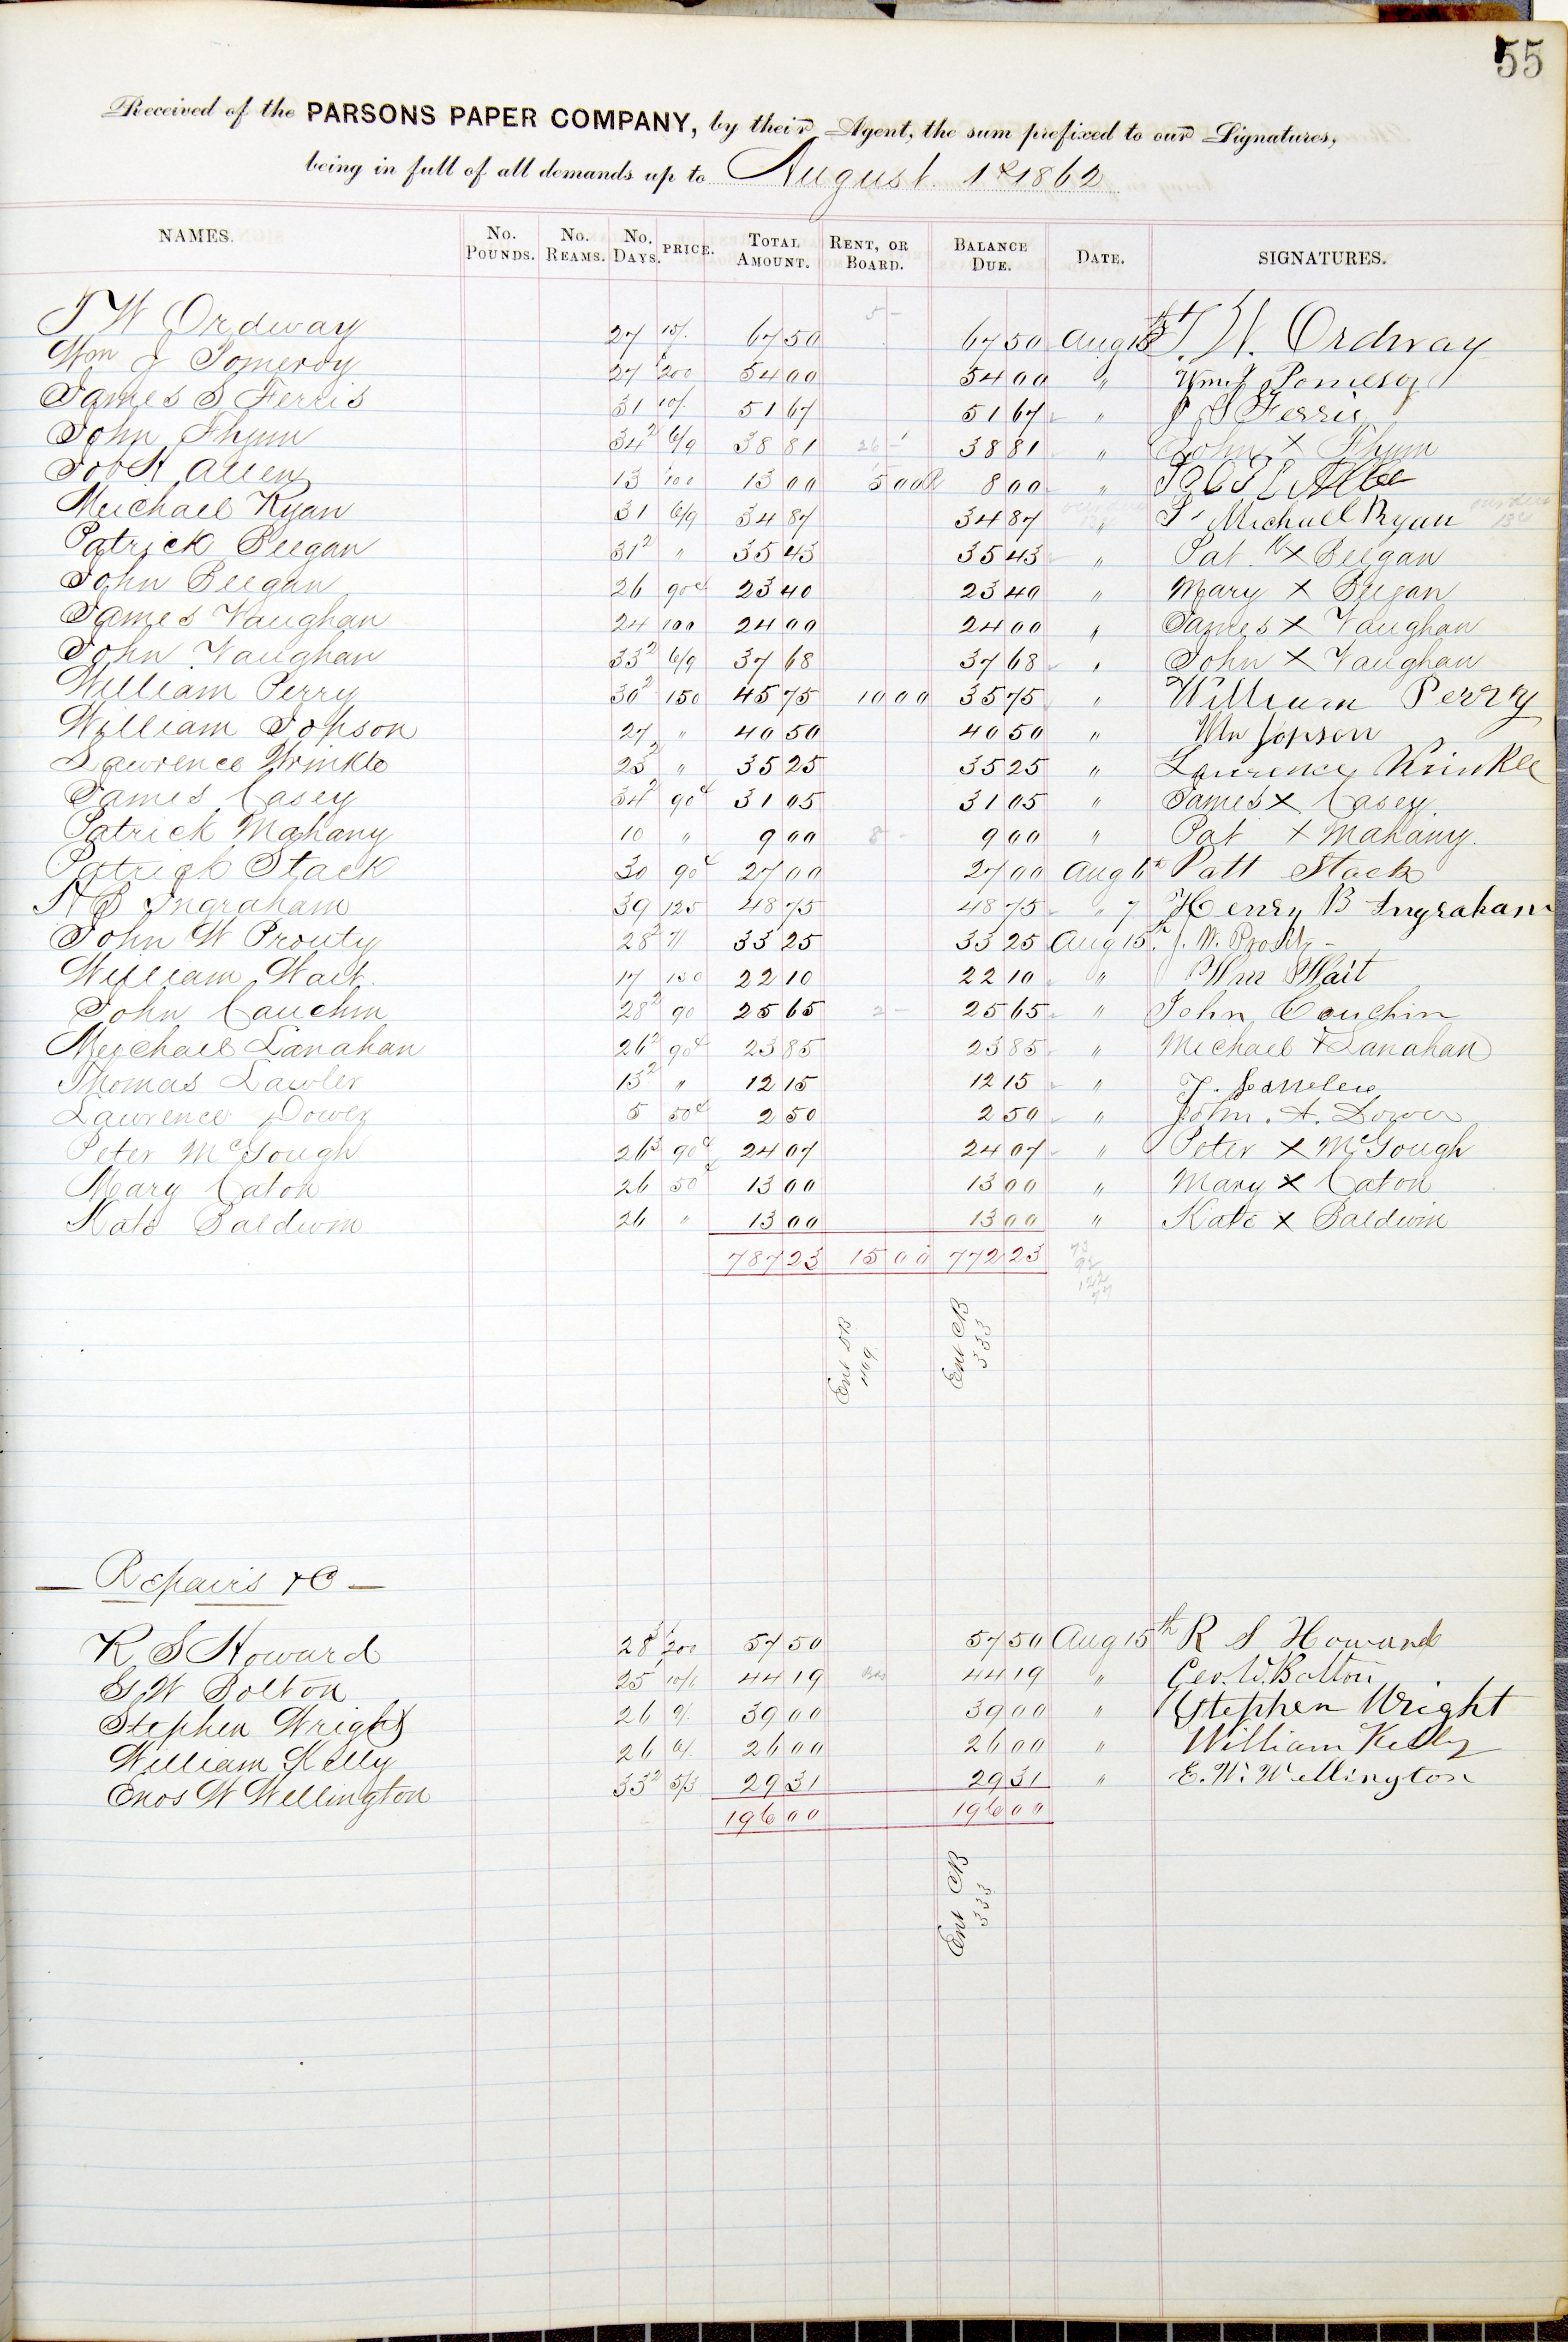 55
Received of the PARSONS PAPER COMPANY, by their Agent, the sum prefixed to our Signatures,
being in full of all demands up to August 1st 1862
NAMES. No. POUNDS. No. REAMS. No. DAYS. PRICE. TOTAL AMOUNT. RENT, OR BOARD. BALANCE DUE. DATE. SIGNATURES.
5 -
T W Ordway 27 15/. 67 50 67 50 Aug 15th T. W. Ordway
Wm J Pomeroy 27 200 54 00 54 00 " Wm J Pomeroy
James S Ferris 31 10/. 51 67 51 67 " J S Ferris
John Flynn 34² 6/9 38 81 26 - 38 81 " John X Flynn
Job H Allen 13 100 13 00 5 00 R 8 00 "
Meichael Ryan 31 6/9 34 87 34 87 " Michael Ryan
Patrick Beegan 31² " 35 43 35 43 " Pat X Beegan
John Beegan 26 90c 23 40 23 40 " Mary X Beegan
James Vaughan 24 100 24 00 24 00 " James X Vaughan
John Vaughan 33² 6/9 37 68 37 68 " John X Vaughan
William Perry 30² 150 45 75 10 00 35 75 " William Perry
William Jopson 27 " 40 50 40 50 " Wm Jopson
Lawrence Wrinkle 23² " 35 25 35 25 " Lawrence Wrinkle
James Casey 34² 90c 31 05 31 05 " James X Casey
Patrick Mahany 10 " 9 00 8 - 9 00 " Pat X Mahany.
Patrick Stack 30 90c 27 00 27 00 Aug 6th Patt Stack
H B Ingraham 39 125 48 75 48 75 " 7 Henry B Ingraham
John W Prouty 28² 7/ 33 25 33 25 Aug 15th J. W. Prouty -
William Wait. 17 130 22 10 22 10 " Wm Wait
John Cauchin 28² 90 25 65 2 - 25 65 " John Couchin
Meichael Lanahan 26² 90c 23 85 23 85 " Michael X Lanahan
Thomas Lawler 13² " 12 15 12 15 "
Lawrence Dower 5 50c 2 50 2 50 " John. A. Dower
Peter McGough 26³ 90c 24 07 24 07 " Peter X McGough
Mary Caton 26 50c 13 00 13 00 " Mary X Caton
Kate Baldwin 26 " 13 00 13 00 " Kate X Baldwin
787 23 15 00 772 23
Ent CB
333
— Repairs &C —
R S Howard 28³ 200 57 50 57 50 Aug 15th R S Howard
G W Bolton 25 10/6 44 19 44 19 " Geo. W. Bolton
Stephen Wright 26 9/. 39 00 39 00 " Stephen Wright
William Kelly 26 6/. 26 00 26 00 " William Kelly
Enos W Wellington 33² 5/3 29 31 29 31 " E. W. Wellington
196 00 196 00
Ent CB
333